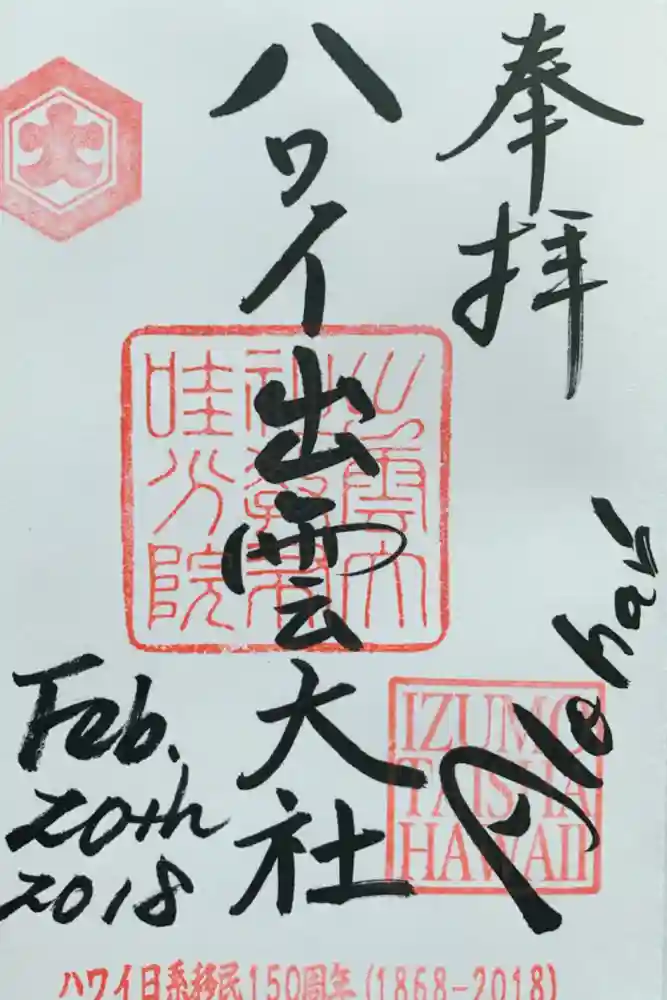 奉拝
ハワイ出雲大社
出雲大
社教布
哇分院
Aloha!
IZUMO
TAISHA
HAWAII
Feb.
20th
2018
ハワイ日系移民150周年(1868-2018)